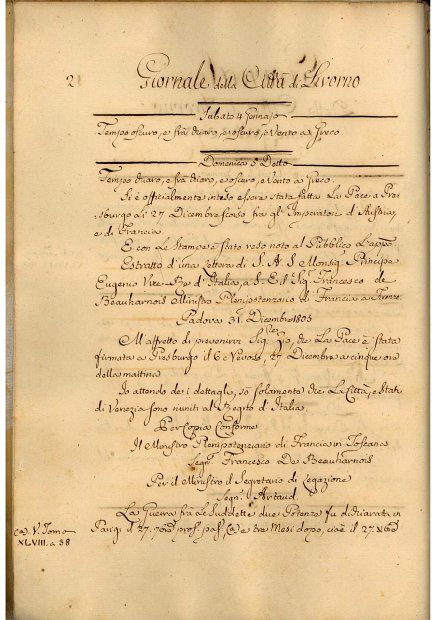 2
Giornale della Città di Livorno
Sabato 4 Gennajo
Tempo oscuro, e frà chiaro, e oscuro, e Vento a Greco
Domenica 5 Detto
Tempo chiaro, e frà chiaro, e oscuro, e Vento a Greco
Si è officialmente inteso essere stata fatta La Pace a Pres
=burgo Li 27 Dicembre scorso fra gl' Imperatori d'Austria,
e di Francia
E con Le Stampe è stato reso noto al Pubblico L'app.
Estratto d'una Lettera di S. A. S. Monsig. Principe
Eugenio Vice-Re d'Italia, a S. E. Sig. Francesco de
Beauharnois Ministro Plenipotenziario di Francia a Firenze
Padova 31. Dicembre 1805
M'affretto di prevenirvi Sig. Zio, che La Pace è stata
firmata a Presburgo il 6 Nevoso, 27 Dicembre a cinque ore
della mattina
Io attendo de i dettagli, so solamente che La Città, e Stati
di Venezia sono riuniti al Regno d'Italia.
Per Copia Conforme
Il Ministro Plenipotenziario di Francia in Toscana
Segn. Francesco De Beauharnois
Per il Ministro il Segretario di Legazione
Segn. Artaud
La Guerra frà Le Suddette due Potenze fu dichiarata in
Parigi il 27. 7bre pros. pas. (a) e tre Mesi dopo, cioè il 27. Xbre
(a) V. Tomo
XLVIII. a 38